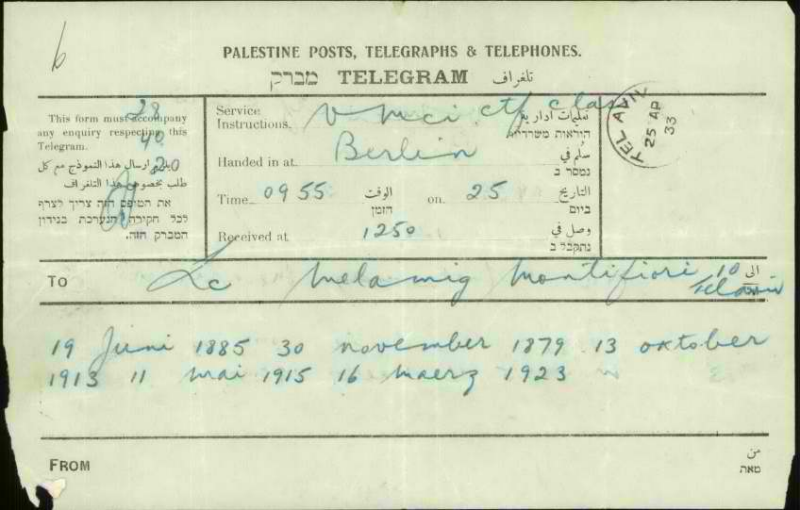 PALESTINE POSTS, TELEGRAPHS & TELEPHONES.
מברק TELEGRAM تلغراف
This form must accompany
any enquiry respecting this
Telegram.
28
40
20
يجب ارسال هذا النموذج مع كل
طلب بخصوص هذا التلغراف
את הטופס הזה צריך לצרף
לכל חקירה הנערכת בנידון
המברק הזה.
Service
Instructions. تعليمات ادارية
הוראות משרדיות
Handed in at Berlin سلم في
נמסר ב
Time 0955 الوقت הזמן on 25 التاريخ ביום
Received at 1250 وصل في
נתקבל ב
TEL AVIV
25 AP
33
To Lc Melamig Montifiori 10 Telaviv الى
19 Juni 1885 30 november 1879 13 oktober
1913 11 mai 1915 16 maerz 1923
FROM من
מאת